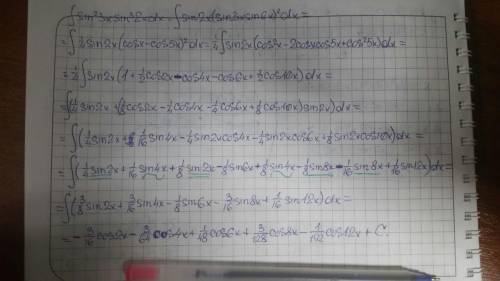 ∫sin²3x sin³2x dx = ∫sin2x(sin3x sin2x)²dx =
= ∫½sin2x(cosx-cos5x)²dx = ¼∫sin2x(cos²x-2cosxcos5x+cos²5x)dx =
= ¼∫sin2x(1+½cos2x-cos4x-cos6x+½cos10x)dx =
= ∫(¼sin2x+(⅛cos2x-¼cos4x-¼cos6x+⅛cos10x)sin2x)dx =
= ∫(¼sin2x+1/16 sin4x-¼sin2xcos4x-¼sin2xcos6x+⅛sin2xcos10x)dx =
= ∫(¼sin2x+1/16 sin4x+⅛sin2x-⅛sin6x+⅛sin4x-⅛sin8x-1/16 sin8x+1/16 sin12x)dx =
= ∫(⅜sin2x+3/16 sin4x-⅛sin6x-3/16 sin8x+1/16 sin12x)dx =
= -3/16 cos2x-3/64 cos4x+1/48 cos6x+3/128 cos8x-1/192 cos12x+C.